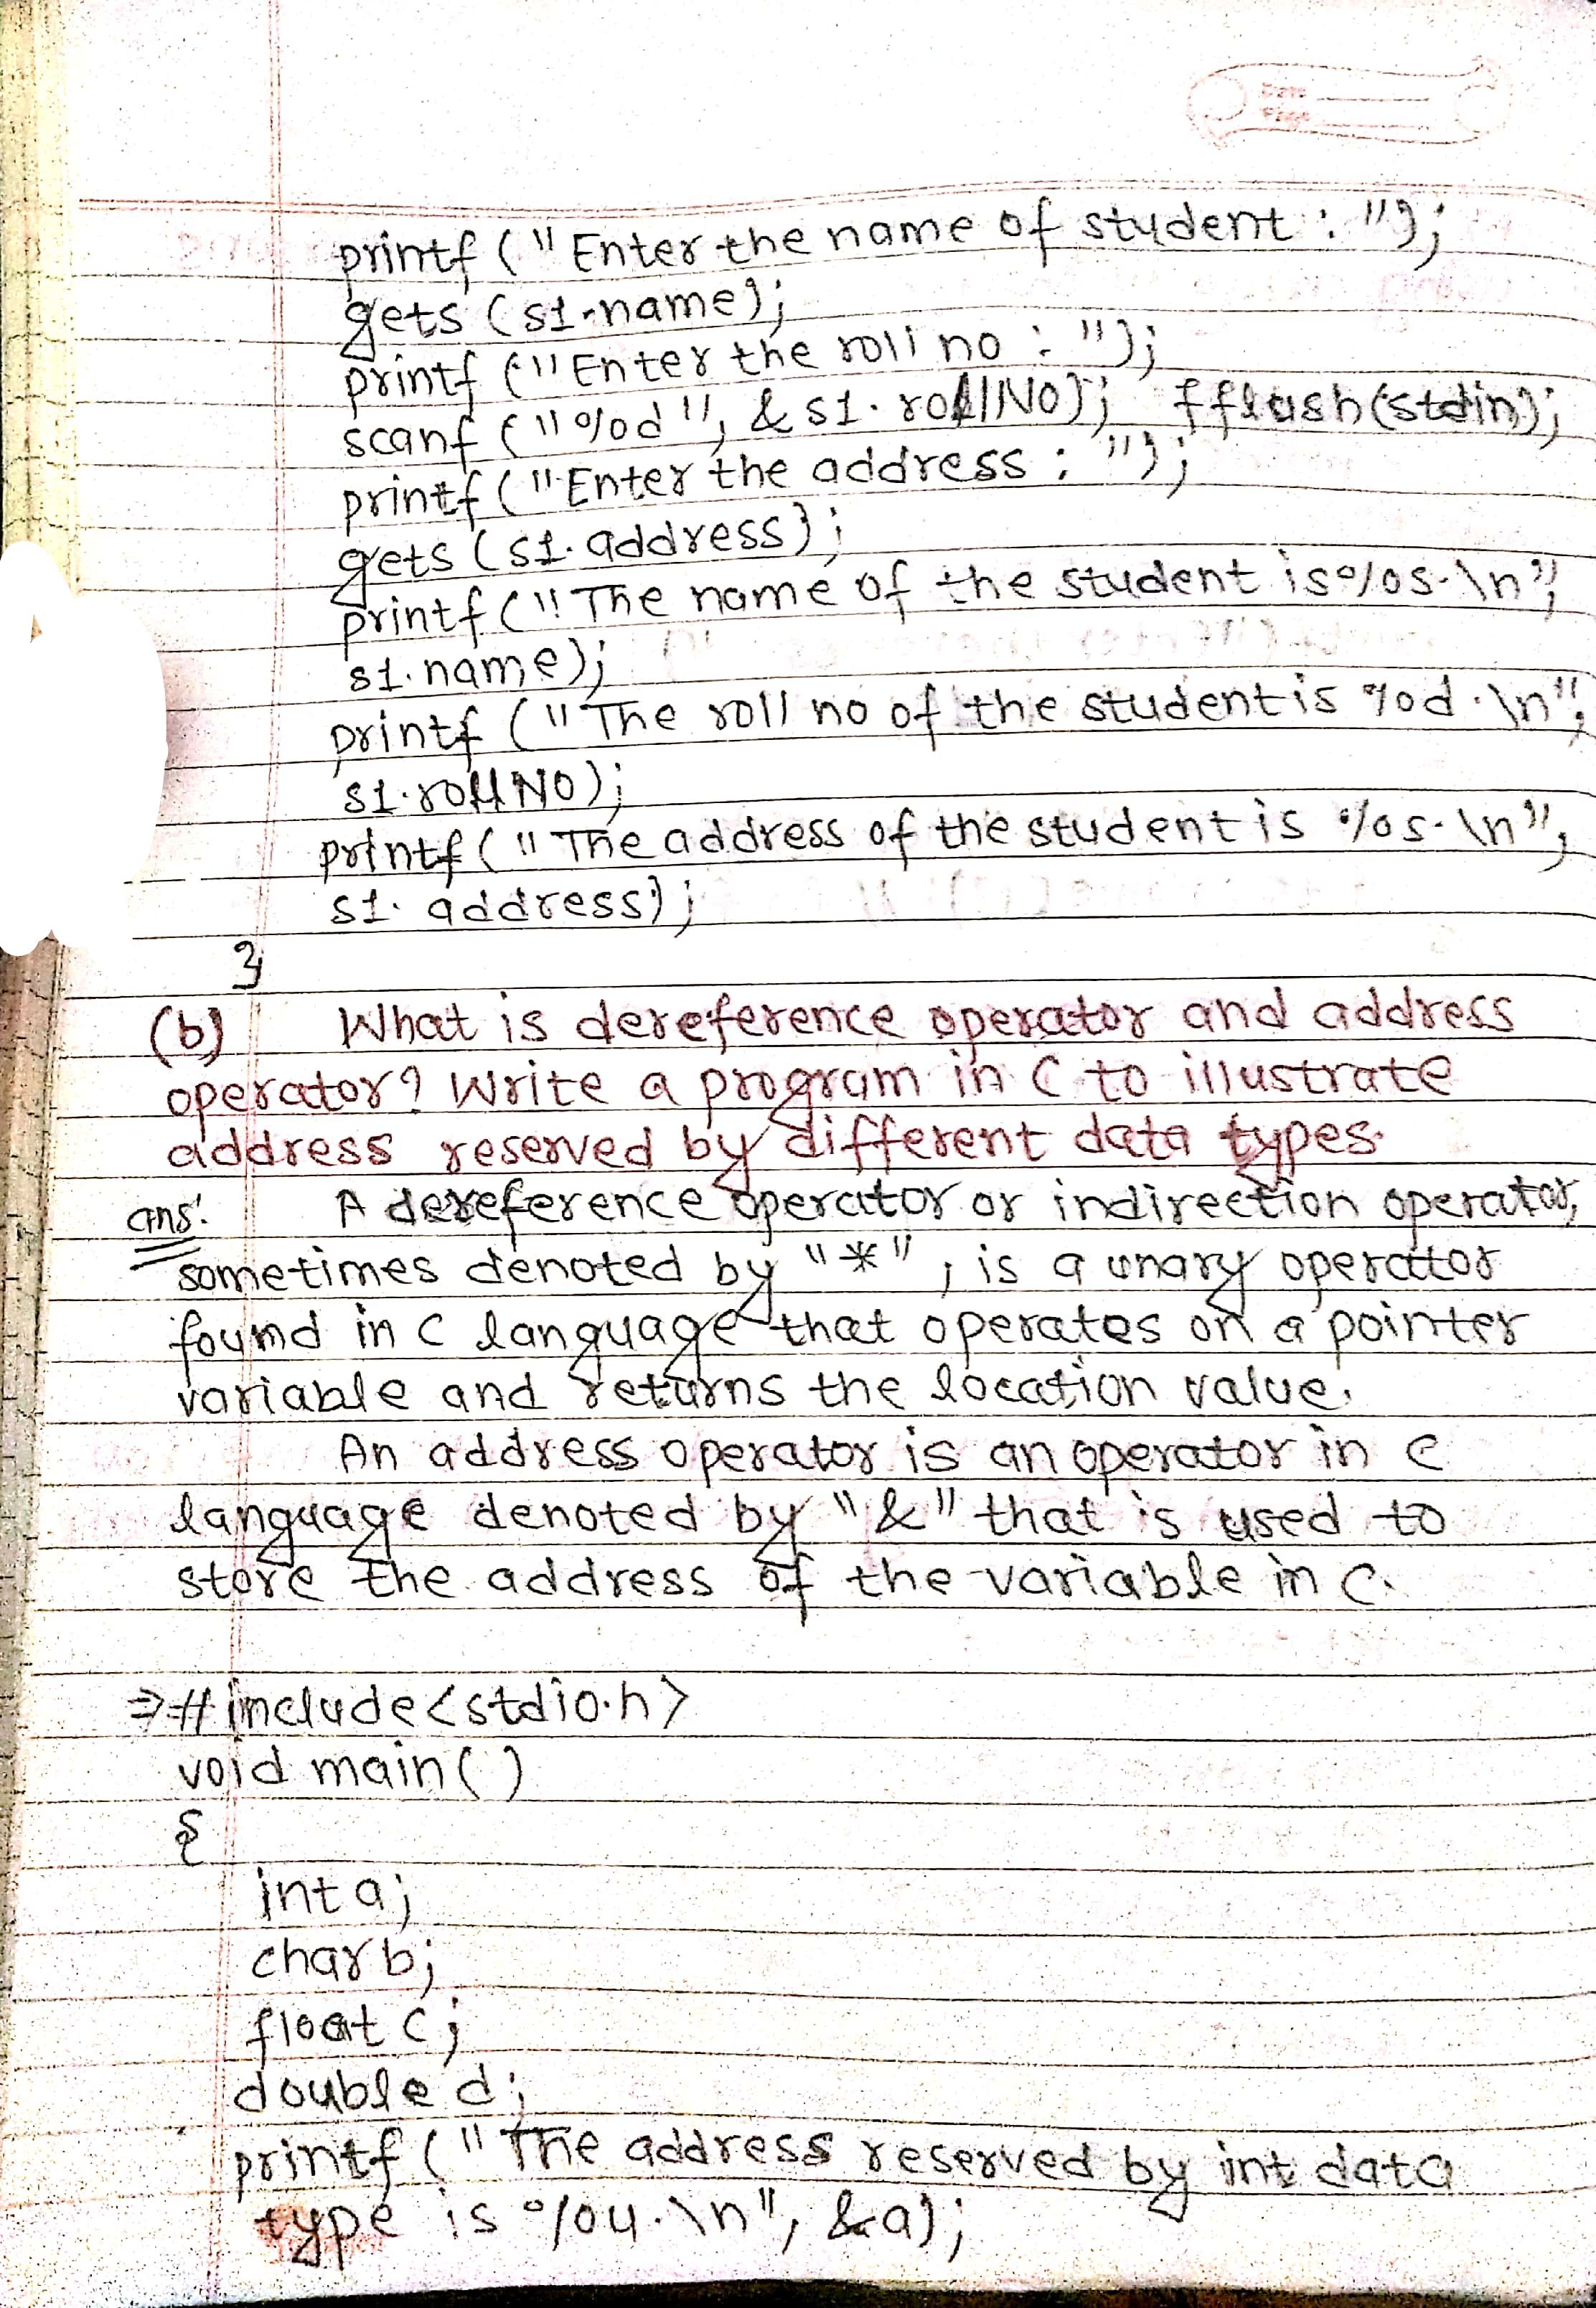 Date
Page
printf ("Enter the name of student : ");
gets (s1.name);
printf ("Enter the roll no : ");
scanf ("%d", &s1.rollNO); fflush(stdin);
printf ("Enter the address : ");
gets (s1.address);
printf ("The name of the student is %s.\n",
s1.name);
printf ("The roll no of the student is %d.\n",
s1.rollNO);
printf ("The address of the student is %s.\n",
s1.address);
}
(b) What is dereference operator and address
operator? Write a program in C to illustrate
address reserved by different data types.
ans. A dereference operator or indirection operator,
sometimes denoted by "*", is a unary operator
found in C language that operates on a pointer
variable and returns the location value.
An address operator is an operator in C
language denoted by "&" that is used to
store the address of the variable in C.
⇒ #include<stdio.h>
void main()
{
int a;
char b;
float c;
double d;
printf ("The address reserved by int data
type is %u.\n", &a);